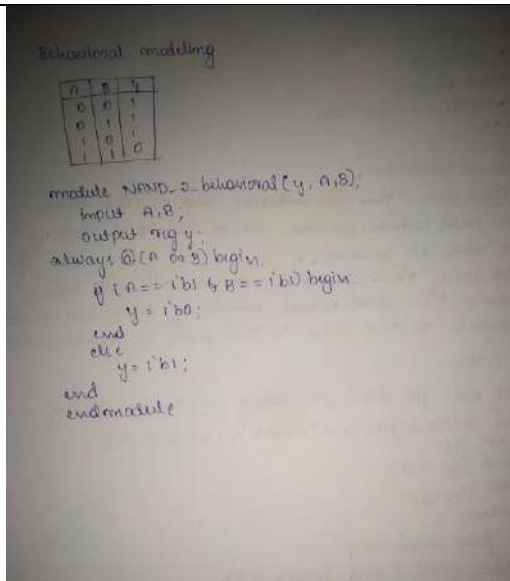 Behavioral modeling
A B Y
0 0 1
0 1 1
1 0 1
1 1 0
module NAND_2_behavioral(y, A,B);
input A,B;
output reg y;
always @(A or B) begin
if (A == 1'b1 & B == 1'b1) begin
y = 1'b0;
end
else
y = 1'b1;
end
endmodule